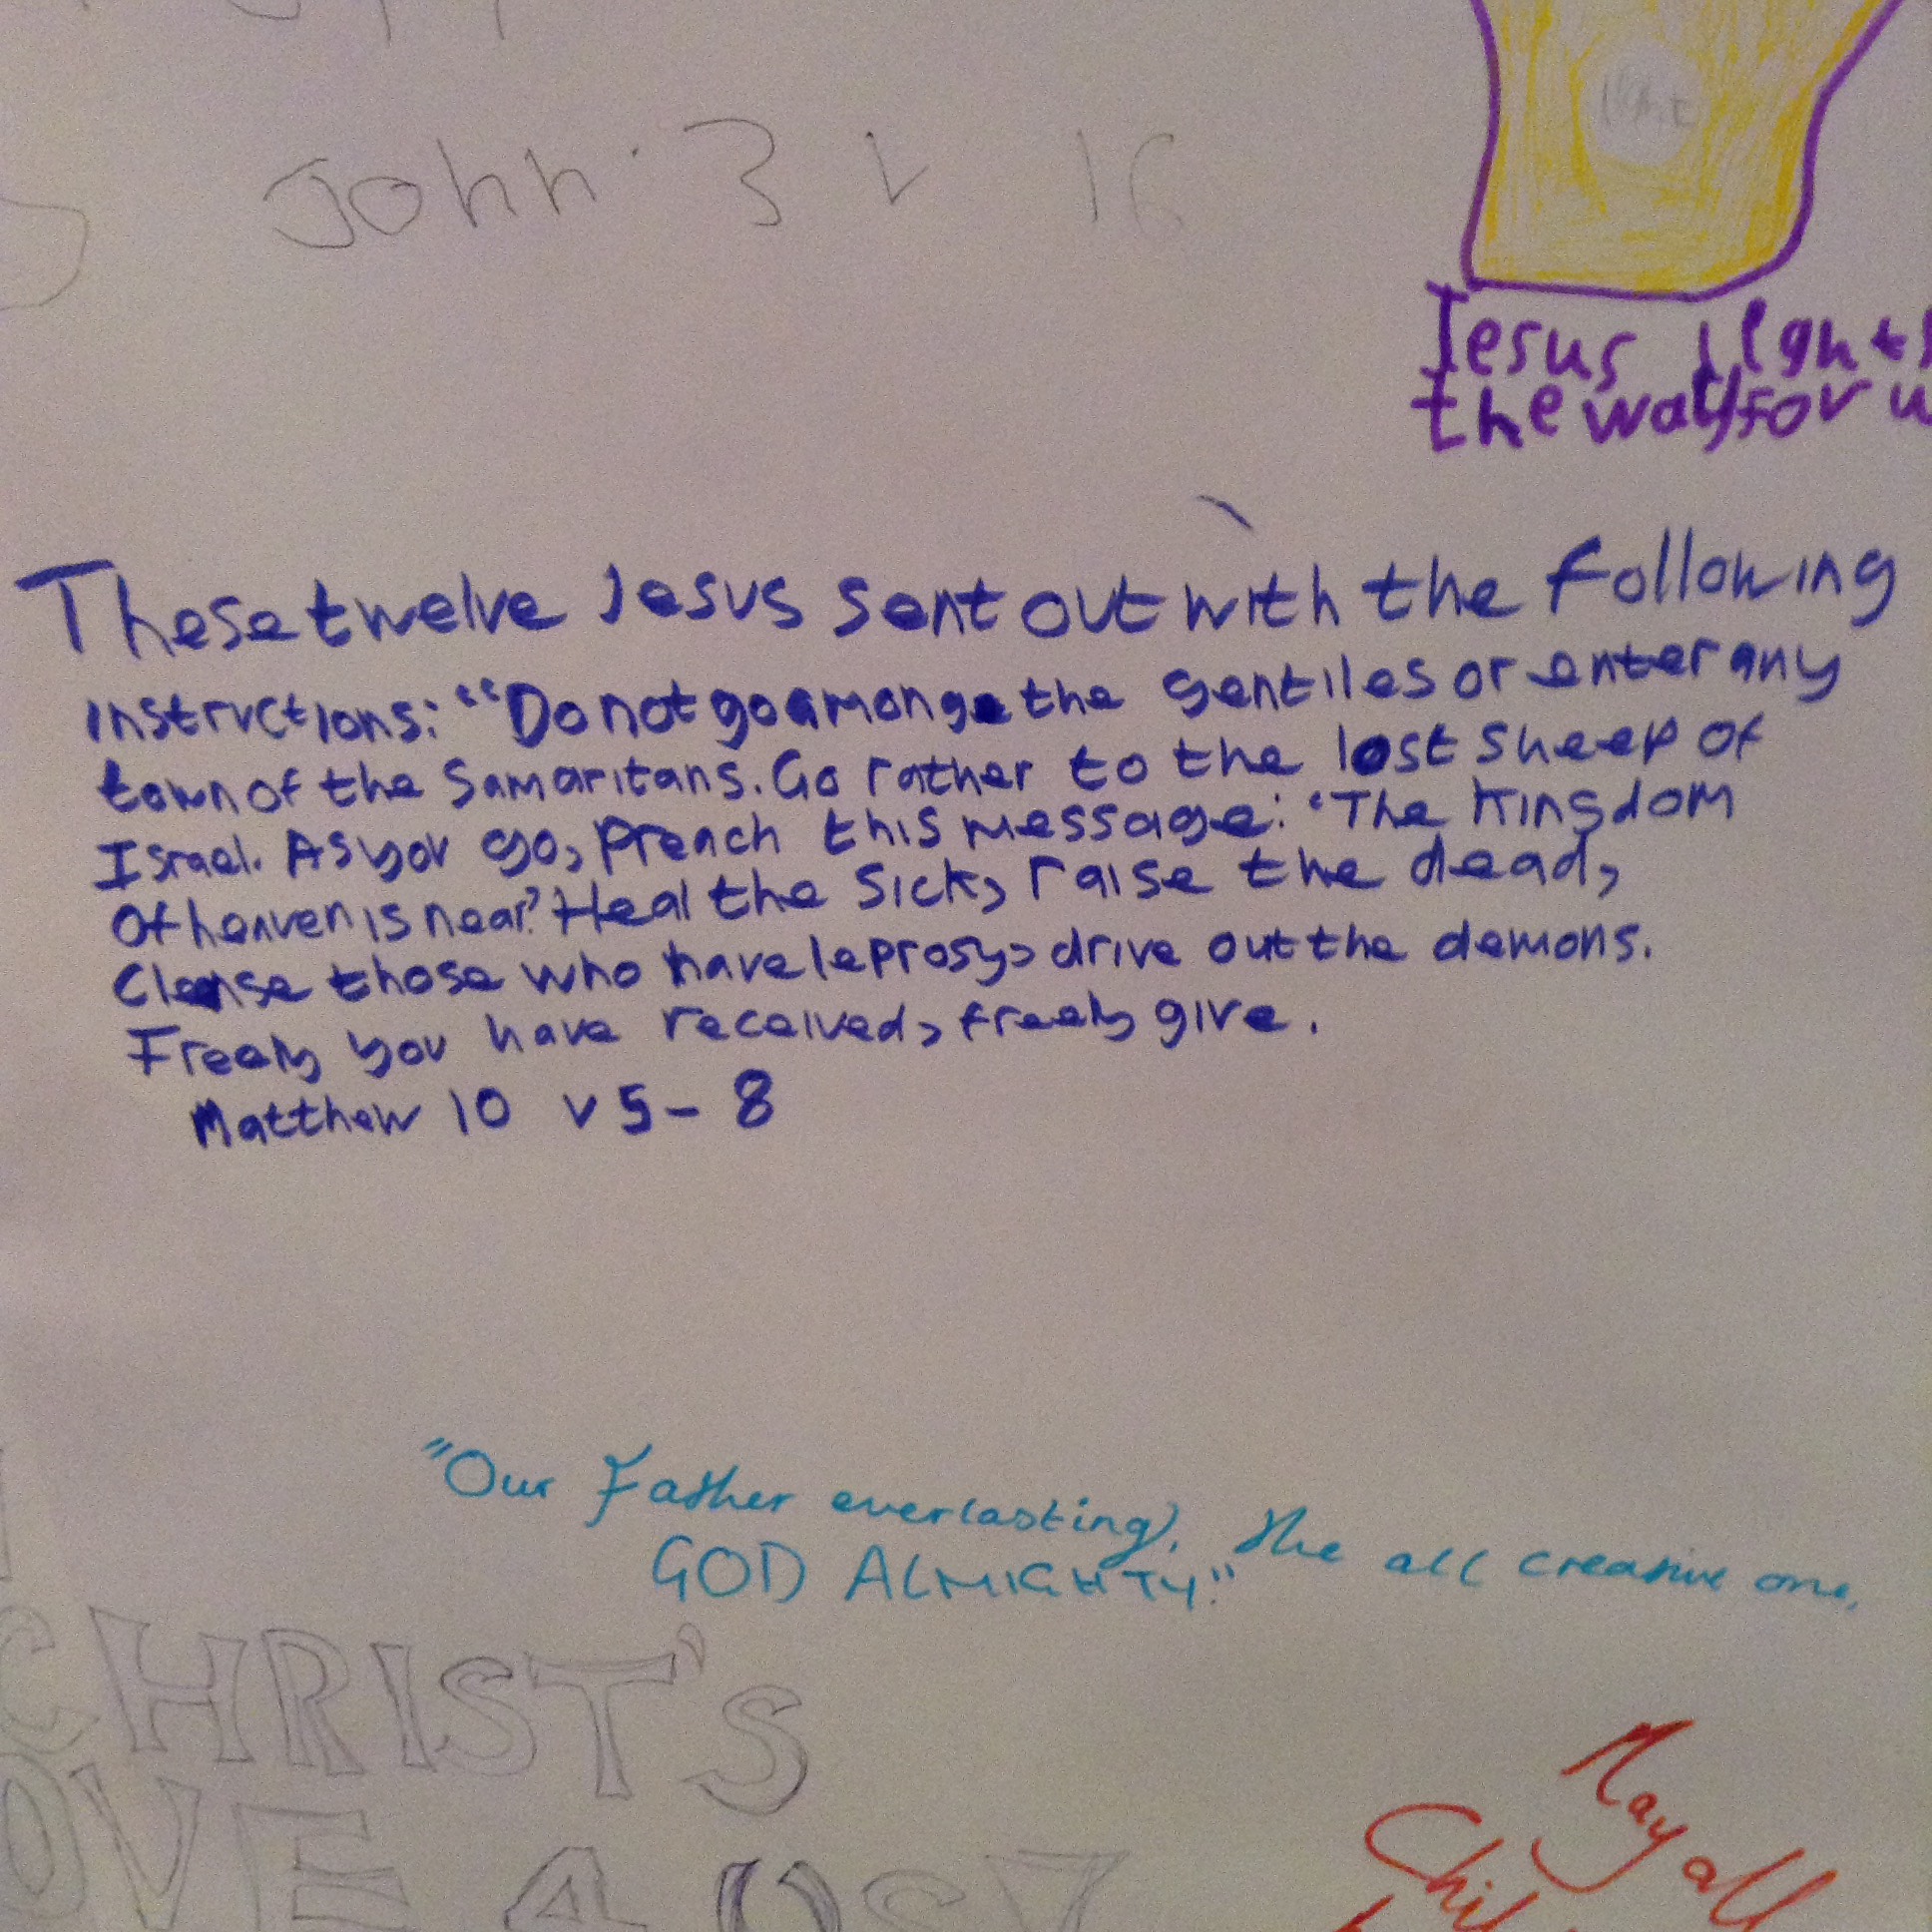 John 3 v 16
light
Jesus lights
the way for u
These twelve Jesus sent out with the following
instructions: "Do not go among the gentiles or enter any
town of the Samaritans. Go rather to the lost sheep of
Israel. As you go, preach this message: 'The Kingdom
Of heaven is near.' Heal the sick, raise the dead,
Cleanse those who have leprosy, drive out the demons.
Freely you have received, freely give.
Matthew 10 v 5 - 8
"Our Father everlasting, the all creative one,
GOD ALMIGHTY."
CHRIST'S
OVE 4 US
May all
Chil